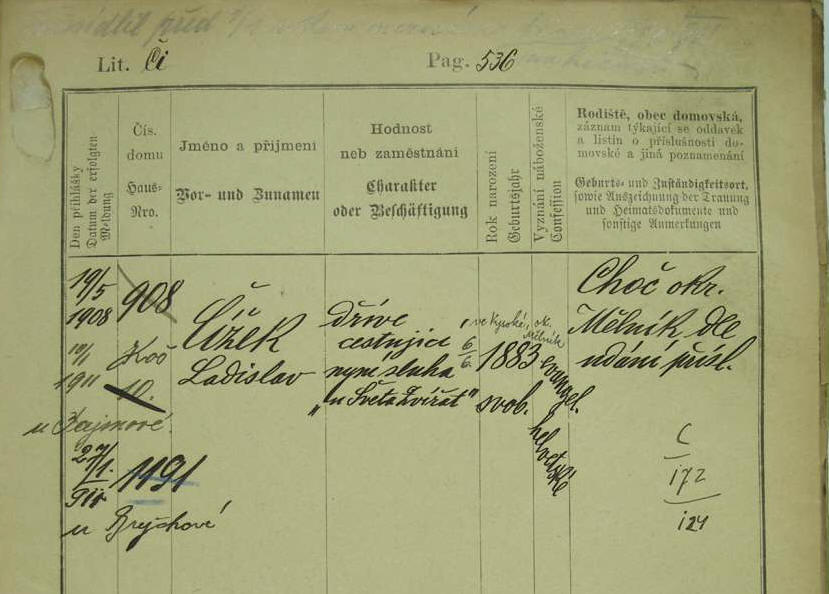 Lit. Či Pag. 536
Den přihlášky
Datum der erfolgten Meldung
Čís.
domu
Haus-
Nro.
Jméno a příjmení
Vor- und Zunamen
Hodnost
neb zaměstnání
Charakter
oder Beschäftigung
Rok narození
Geburtsjahr
Vyznání náboženské
Confession
Rodiště, obec domovská,
záznam týkající se oddavek
a listin o příslušnosti do-
movské a jiná poznamenání
Geburts- und Zuständigkeitsort,
sowie Auszeichnung der Trauung
und Heimatsdokumente und
sonstige Anmerkungen
19/5
1908
908
Čížek
Ladislav
dříve
cestující
nyní sluha
„u Světazvířat"
6/6
1883
svob.
ok.
Mělník
evangel.
helvetské
Choč okr.
Mělník dle
udání přísl.
10/1
1911
10.
u
27/1
911
1191
u
172
124